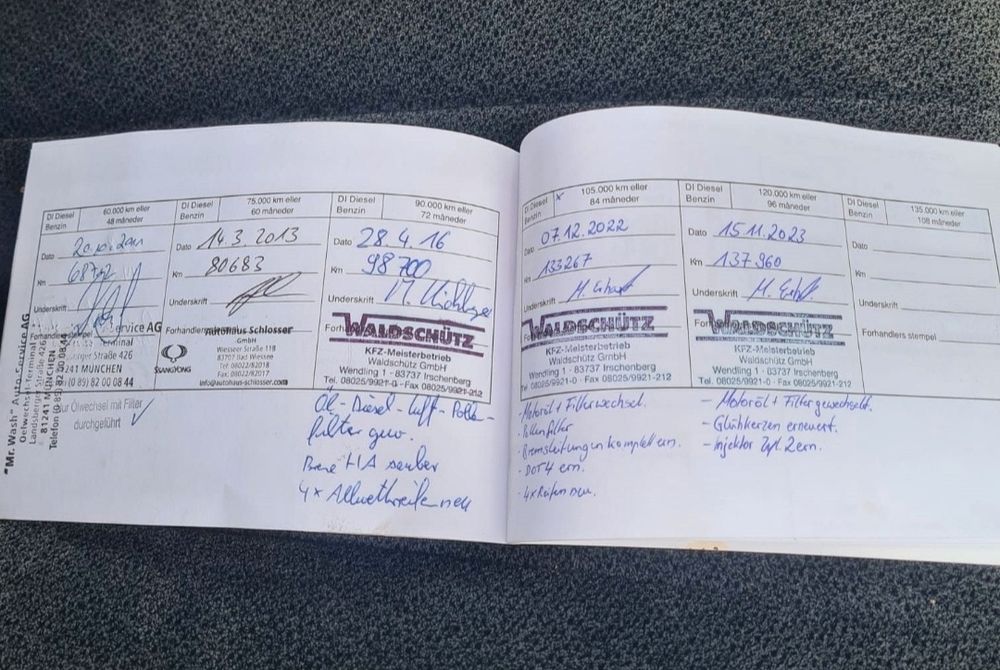 DI Diesel
Benzin
60.000 km eller
48 måneder
Dato 20.10.2011
Km
Underskrift
Forhandlers stempel
Service AG
Terminal
Landsberger Straße 426
81241 MÜNCHEN
(0 89) 82 00 08 44
"Mr. Wash" Auto-Service AG
Oelwechsel-Terminal
Landsberger Straße 426
81241 MÜNCHEN
Telefon (0 89) 82 00 08 44
nur Ölwechsel mit Filter
durchgeführt
DI Diesel
Benzin
75.000 km eller
60 måneder
Dato 14.3.2013
Km 80683
Underskrift
Forhandlers
Autohaus Schlosser
GmbH
Wiesseer Straße 118
83707 Bad Wiessee
Tel: 08022/82018
Fax: 08022/82017
info@autohaus-schlosser.com
SSANGYONG
DI Diesel
Benzin
90.000 km eller
72 måneder
Dato 28.4.16
Km 98700
Underskrift
Forh
WALDSCHÜTZ
KFZ-Meisterbetrieb
Waldschütz GmbH
Wendling 1 - 83737 Irschenberg
Tel. 08025/9921-0 - Fax 08025/9921-212
Öl-Diesel-Luft-Pollen-
filter gew.
HA sauber
4x Allwetterreifen neu
DI Diesel x
Benzin
105.000 km eller
84 måneder
Dato 07.12.2022
Km 133267
Underskrift
Forh
WALDSCHÜTZ
KFZ-Meisterbetrieb
Waldschütz GmbH
Wendling 1 - 83737 Irschenberg
Tel. 08025/9921-0 - Fax 08025/9921-212
- Motoröl + Filterwechsel.
- Pollenfilter
- Bremsleitungen komplett ern.
- DOT4 ern.
- 4x Reifen neu.
DI Diesel
Benzin
120.000 km eller
96 måneder
Dato 15.11.2023
Km 137960
Underskrift
Forh
WALDSCHÜTZ
KFZ-Meisterbetrieb
Waldschütz GmbH
Wendling 1 - 83737 Irschenberg
Tel. 08025/9921-0 - Fax 08025/9921-212
- Motoröl + Filter gewechselt.
- Glühkerzen erneuert.
- Injektor Zyl. 2 ern.
DI Diesel
Benzin
135.000 km eller
108 måneder
Dato
Km
Underskrift
Forhandlers stempel